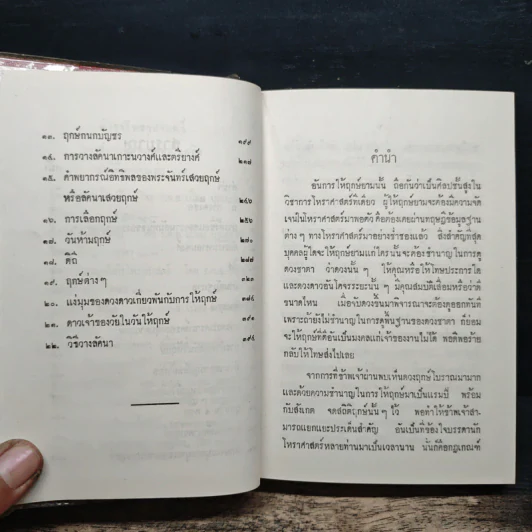 ๑๓. ฤกษ์ถนกบัญชร ๑๙๙
๑๔. การวางลัคนาเกาะนวางศ์และตรียางค์ ๒๑๗
๑๕. คำพยากรณ์อิทธิพลของพระจันทร์เสวยฤกษ์
หรือลัคนาเสวยฤกษ์ ๒๔๖
๑๖. การเลือกฤกษ์ ๒๕๖
๑๗. วันห้ามฤกษ์ ๒๗๑
๑๘. ดิถี ๒๗๗
๑๙. ฤกษ์ต่างๆ
๒๐. แง่มุมของดวงดาวเกี่ยวพันกับการให้ฤกษ์
๒๑. ดาวเจ้าของวัยในวันให้ฤกษ์
๒๒. วิธีวางลัคนา
คำนำ
อันการให้ฤกษ์ยามนั้น ถือกันว่าเป็นศิลปชั้นสูงใน
วิชาการโหราศาสตร์ทีเดียว ผู้ให้ฤกษ์ยามจะต้องมีความจัด
เจนในโหราศาสตร์มาพอตัว คือต้องเคยผ่านทฤษฎีข้อมูลฐาน
ต่าง ๆ ทางโหราศาสตร์มาอย่างช่ำชองแล้ว สิ่งสำคัญที่สุด
บุคคลผู้ใดจะให้ฤกษ์ยามแก่ใครนั้นจะต้องชำนาญในการดู
ดวงชาตา ว่าดวงนั้น ๆ ให้คุณหรือให้โทษประการใด
และดวงดาวอันใดจรระยะนั้น ๆ มีคุณสมบัติเสื่อมหรือว่าดี
ขนาดไหน เมื่อจับดวงขึ้นมาพิจารณาจะต้องดูออกทันที
เพราะถ้ายังไม่ชำนาญในการดูพื้นฐานของดวงชาตา ก็ย่อม
จะให้ฤกษ์ที่ดีอันเป็นมงคลแก่เจ้าของงานไม่ได้ พอดีพอร้าย
กลับให้โทษส่งไปเลย
จากการที่ข้าพเจ้าผ่านพบเห็นดวงฤกษ์โบราณมามาก
และด้วยความชำนาญในการให้ฤกษ์มาเป็นแรมปี พร้อม
กับสังเกต จดสถิติฤกษ์นั้น ๆ ไว้ พอทำให้ข้าพเจ้าสา-
มารถแยกแยะประเด็นสำคัญ อันเป็นที่ข้องใจบรรดานัก
โหราศาสตร์หลายท่านมาเป็นเวลานาน นั่นก็คือกฎเกณฑ์